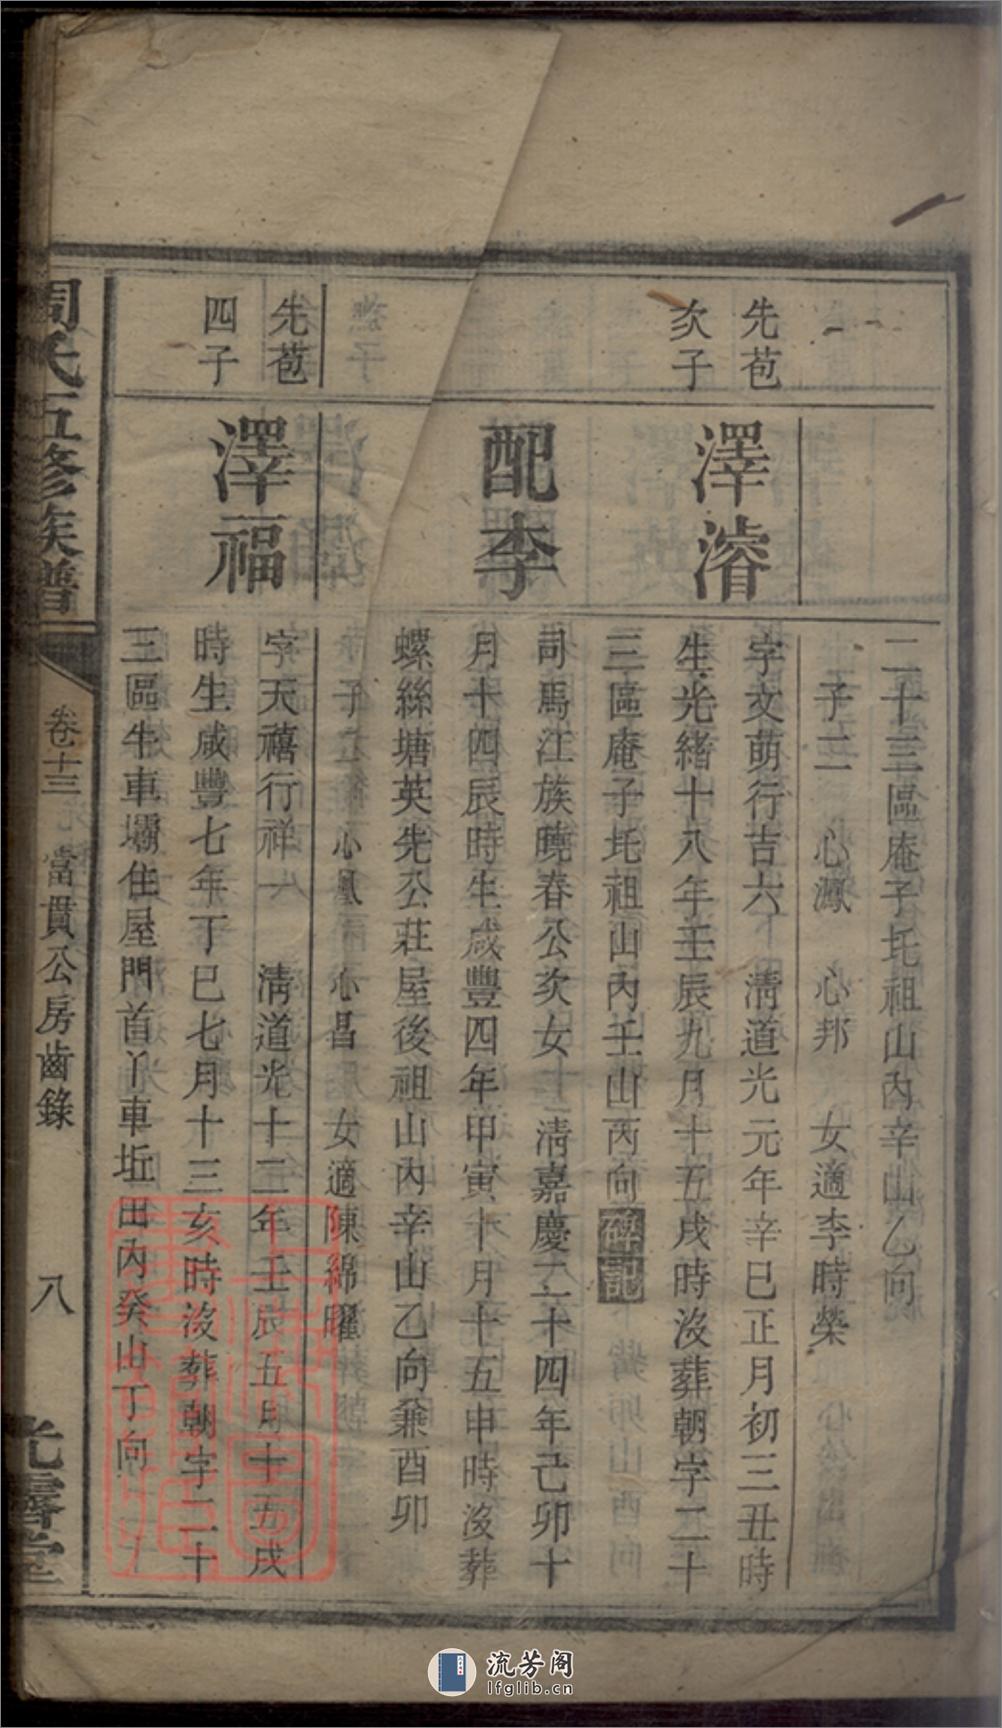 二十三區庵子坨祖山內辛山乙向
子二　心源　心邦　女適李時榮
先苞
次子
澤濬
字文萌行吉六　清道光元年辛巳正月初三丑時
生光緒十八年壬辰九月十五戌時沒葬朝字二十
三區庵子坨祖山內壬山丙向碑記
配李
司馬江族曉春公次女　清嘉慶二十四年己卯十
月十四辰時生咸豐四年甲寅十月十五申時沒葬
螺絲塘英先公莊屋後祖山內辛山乙向兼酉卯
子　心　心昌　女適陳綿曜
先苞
四子
澤福
字天禧行祥一　清道光十二年壬辰五月十五戌
時生咸豐七年丁巳七月十三亥時沒葬朝字二十
三區牛車壩住屋門首丫車坵田內癸山丁向
周氏五修族譜
卷十三
當貫公房齒錄
八
光霽堂
流芳阁
lfglib.cn